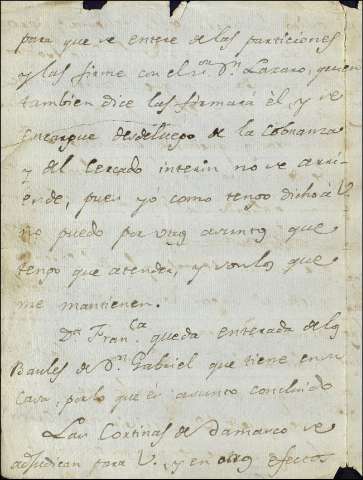 para que se entere de las particiones
y las firme con el s.or D.n Lazaro, quien
tambien dice las firmará él, y se
encargue desde luego de la cobranza
y del Cercado interin no se arri-
ende, pues yó como tengo dicho á V.
no puedo por otros asuntos que
tengo que atender, y son los que
me mantienen.
D.a Fran.ca queda enterada de los
Baules de D.n Gabriel que tiene en su
Casa, por lo que és asunto concluido
Las Cortinas de Damasco se
adjudican para V. y en otros efectos